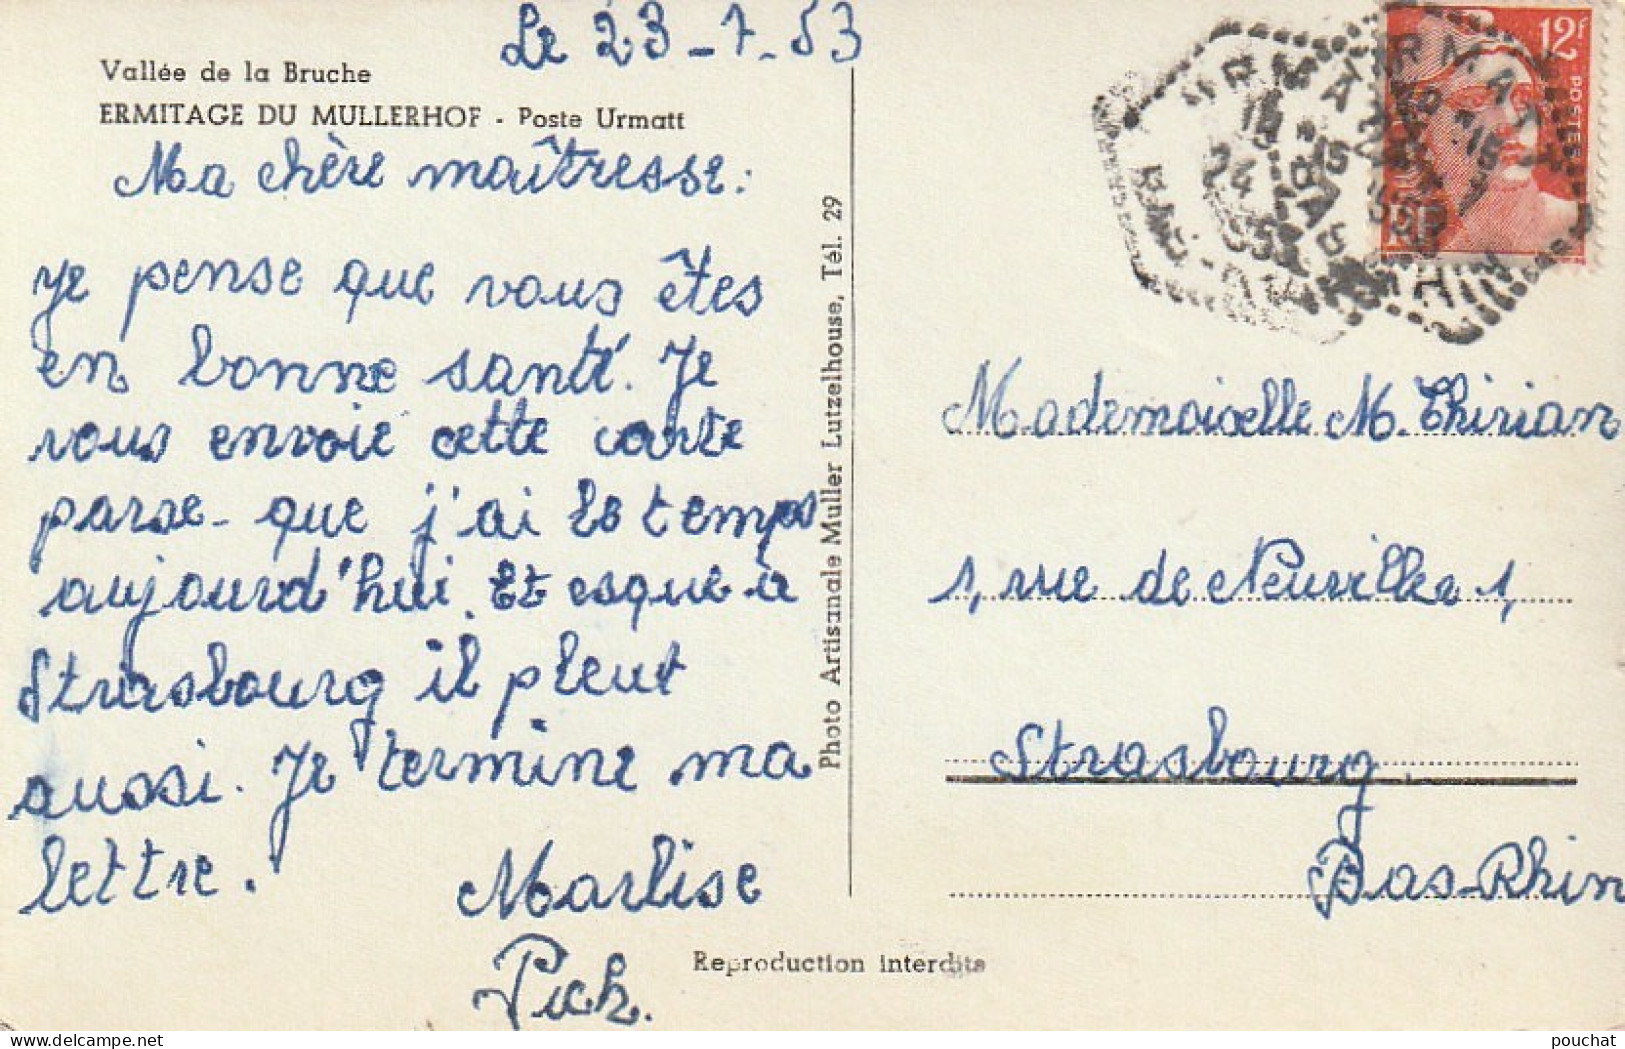 Le 23-7-53
Vallée de la Bruche
ERMITAGE DU MULLERHOF - Poste Urmatt
Ma chère maîtresse:
Je pense que vous êtes
en bonne santé. Je
vous envoie cette carte
parse-que j'ai le temps
aujourd'hui. Et esque à
Strasbourg il pleut
aussi. Je termine ma
lettre.
Marlise
Pich.
Photo Artisanale Muller Lutzelhouse, Tél. 29
Reproduction interdite
12F
POSTES
RF
URMATT
24
BAS-RHIN
Mademoiselle M. Thirian
1, rue de Neuviller 1,
Strasbourg.
Bas-Rhin
delcampe.net
pouchat